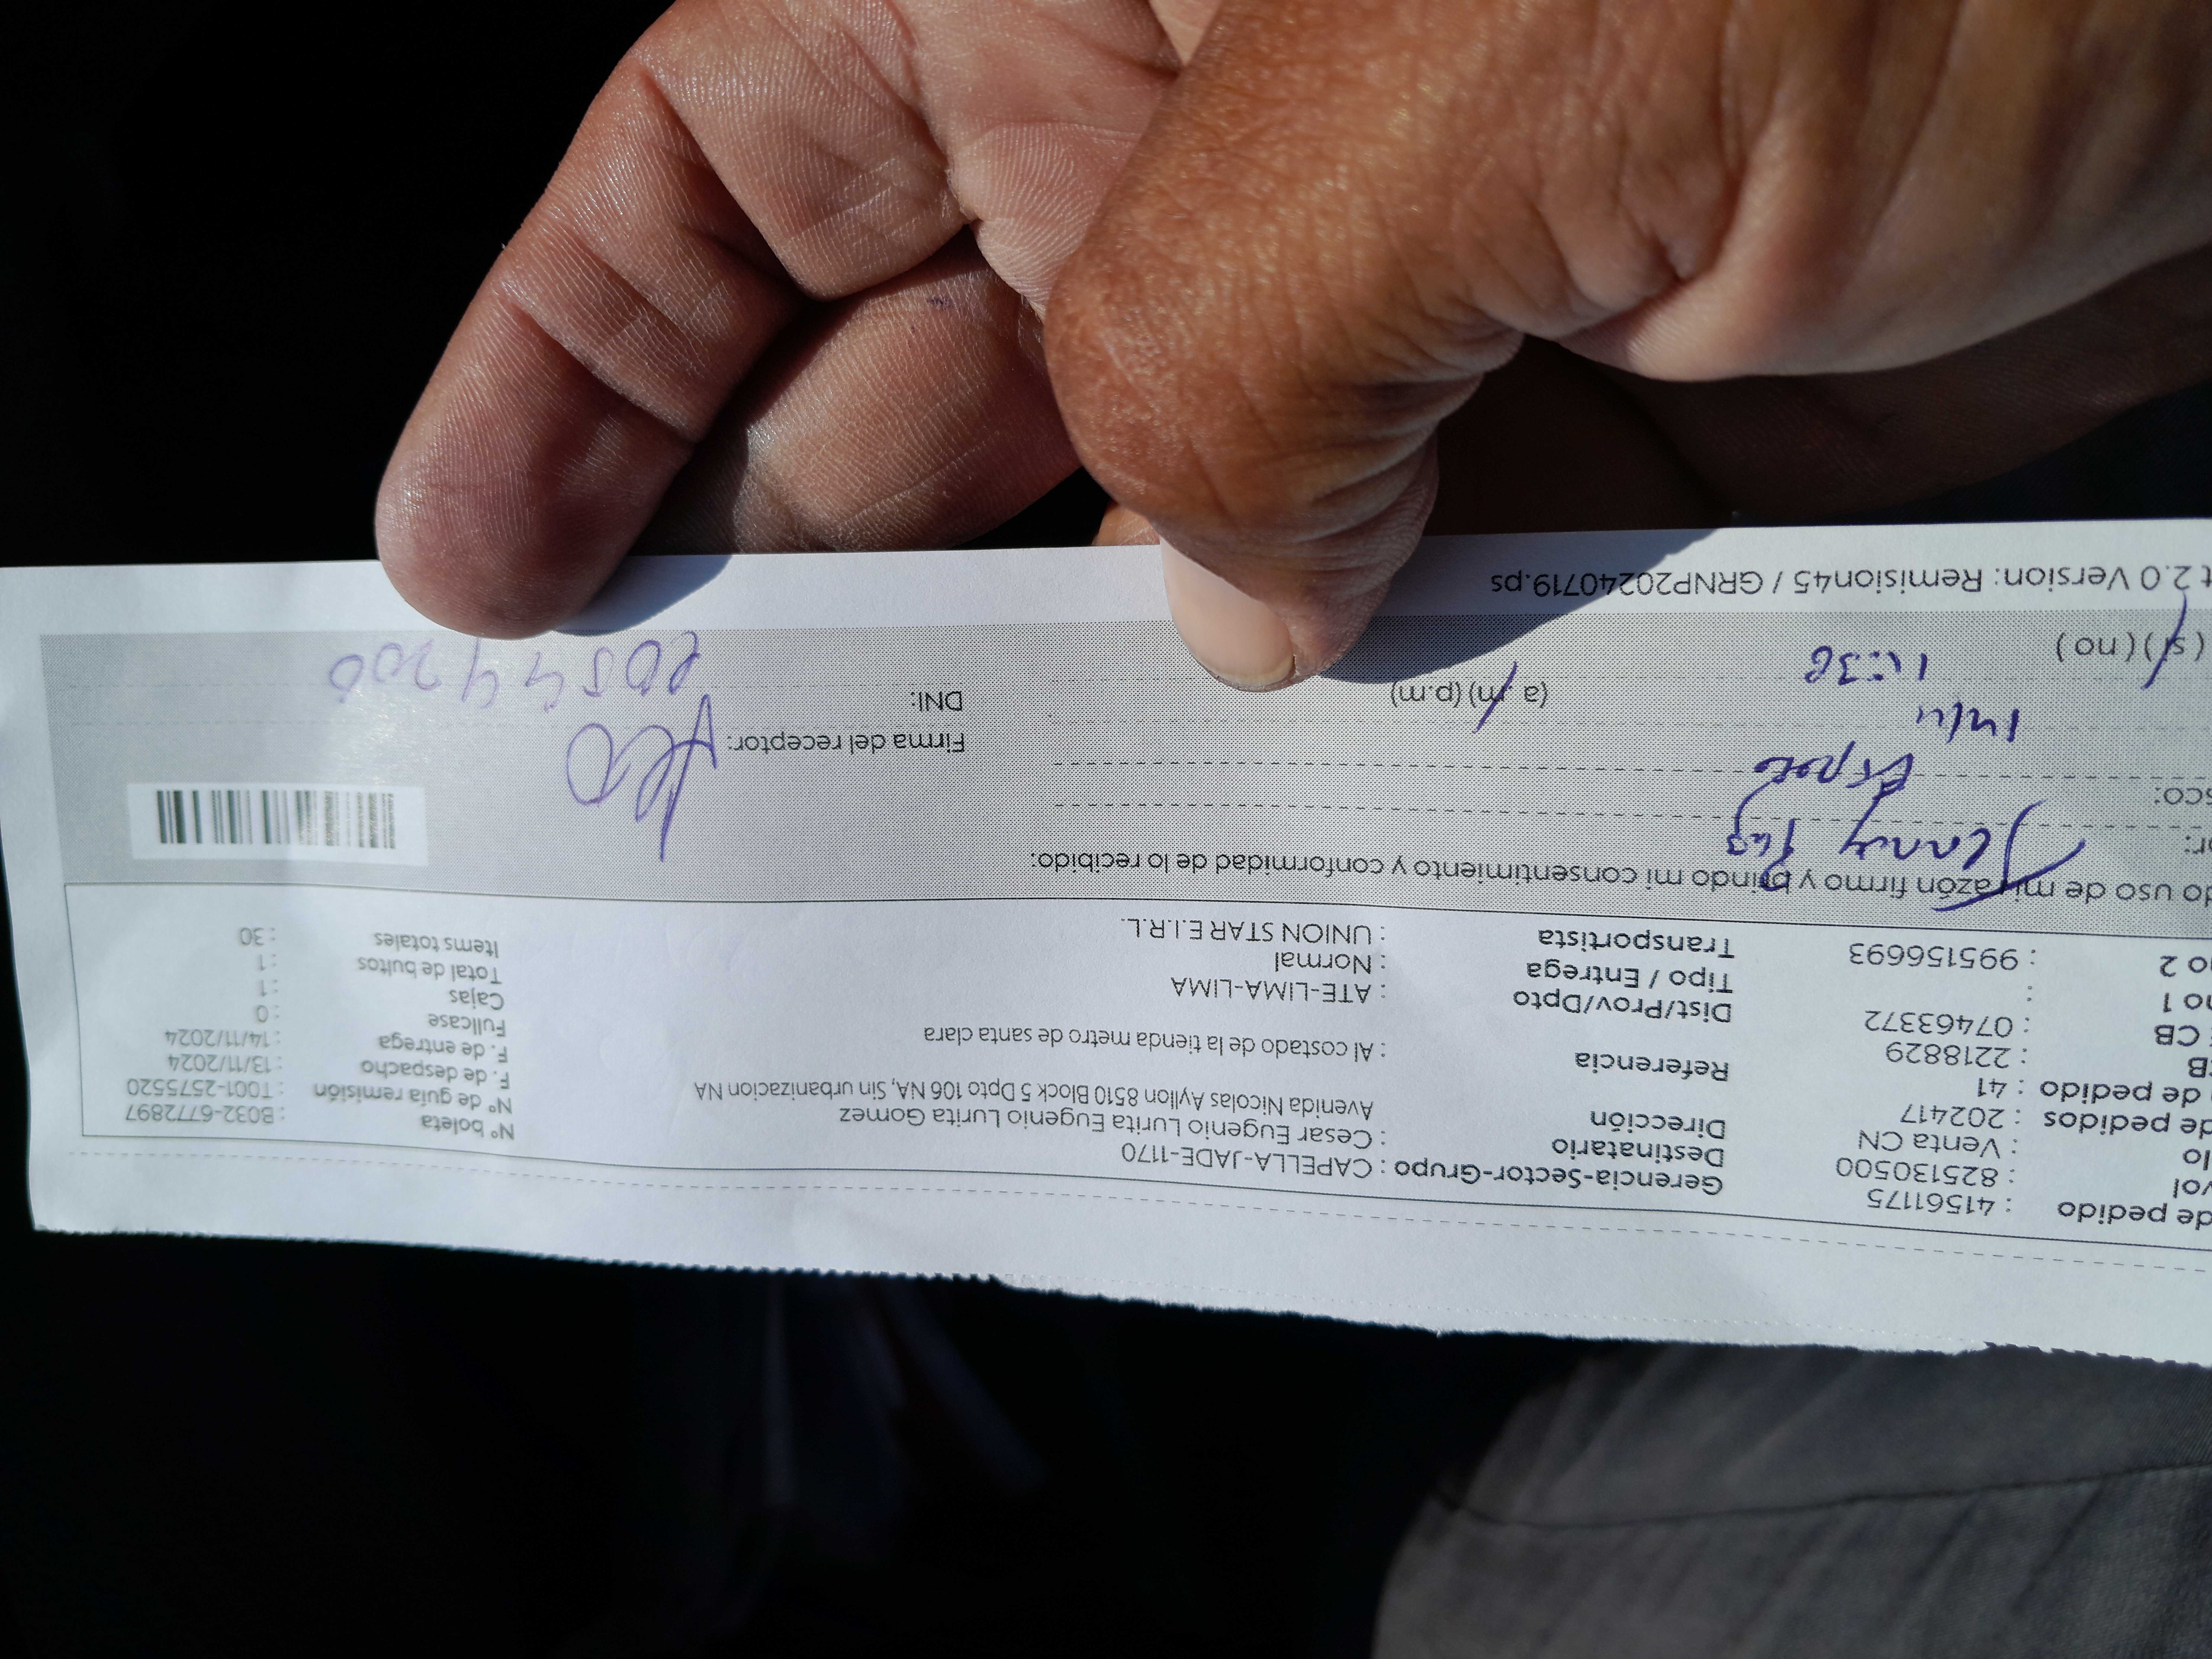 de pedido : 41561175 Gerencia-Sector-Grupo : CAPELLA-JADE-1170
vol : 825130500 Destinatario : Cesar Eugenio Lurita Eugenio Lurita Gomez Nº boleta : B032-6772897
lo : Venta CN Dirección Avenida Nicolas Ayllon 8510 Block 5 Dpto 106 NA, Sin urbanizacion NA Nº de guía remisión : T001-2575520
de pedidos : 202417 F. de despacho : 13/11/2024
de pedido : 41 Referencia : Al costado de la tienda metro de santa clara F. de entrega : 14/11/2024
CB : 2218829 Fullcase : 0
CB : 07463372 Dist/Prov/Dpto : ATE-LIMA-LIMA Cajas : 1
no 1 : Tipo / Entrega : Normal Total de bultos : 1
no 2 : 995156693 Transportista : UNION STAR E.I.R.L. Items totales : 30
do uso de mi razón firmo y brindo mi consentimiento y conformidad de lo recibido:
or: Jenny
sco: Firma del receptor:
14/11 (a.m) (p.m) DNI:
(si) (no)
t 2.0 Version: Remision45 / GRNP20240719.ps